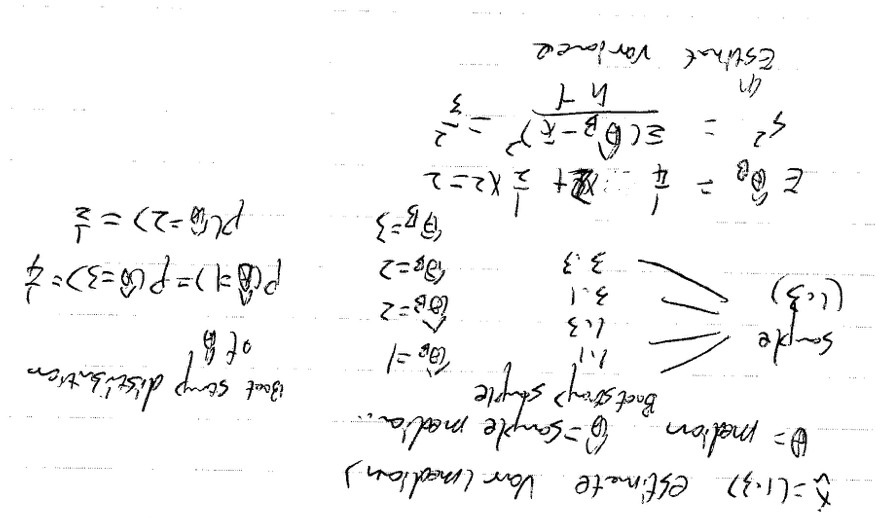 x̰=(1,3) estimate Var(median)
θ= median θ̂=sample media..
Bootstrap sample
sample (1,3)
1,1 θ̂_B=1
1,3 θ̂_B=2
3,1 θ̂_B=2
3,3 θ̂_B=3
Boot strap distribution
of θ̂
P(θ̂=1)=P(θ̂=3)=1/4
P(θ̂=2)=1/2
E θ̂_B = 1/4 + 1/2 x2=2
s² = Σ(θ̂_B-x̄)²/(n-1) = 2/3
Estimat Variance